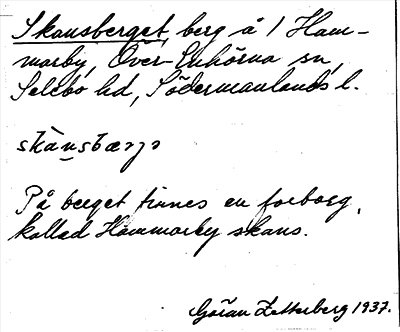 Skansberget, berg å 1 Ham-
marby, Över-Enhörna sn,
Selebo hd, Södermanlands l.
skànsbærjə
På berget finnes en forborg,
kallad Hammarby skans.
Göran Zetterberg 1937.